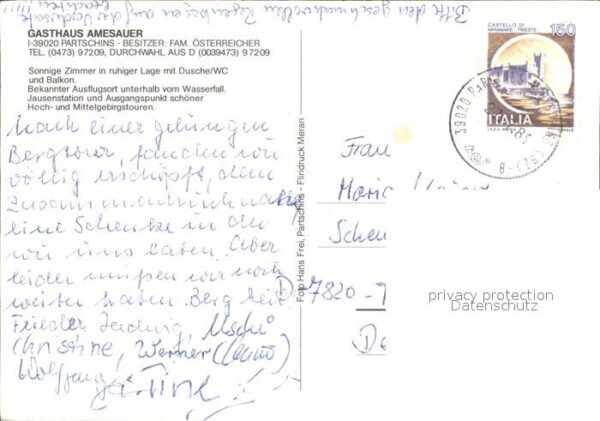 Bitte den geschmackvollen Regenbogen auf der Vorderseite
beachten !!!!
GASTHAUS AMESAUER
I-39020 PARTSCHINS - BESITZER: FAM. ÖSTERREICHER
TEL. (0473) 97209, DURCHWAHL AUS D (0039473) 97209
Sonnige Zimmer in ruhiger Lage mit Dusche/WC
und Balkon.
Bekannter Ausflugsort unterhalb vom Wasserfall.
Jausenstation und Ausgangspunkt schöner
Hoch- und Mittelgebirgstouren.
Nach einer gelungen
Bergtour, fanden wir
völlig erschöpft, dem
Zusammenbruch nahe
eine Schenke in der
wir uns laben. Aber
leider müssen wir noch
weiter haben. Berg heil
Friedler, Hedwig, Uschi
Christine, Werner
Wolfgang
Foto Hans Frei, Partschins - Fliridruck Meran
CASTELLO DI
MIRAMARE - TRIESTE
150
ITALIA
39020
Frau
Maria
Schen
D 7820 -
privacy protection
Datenschutz